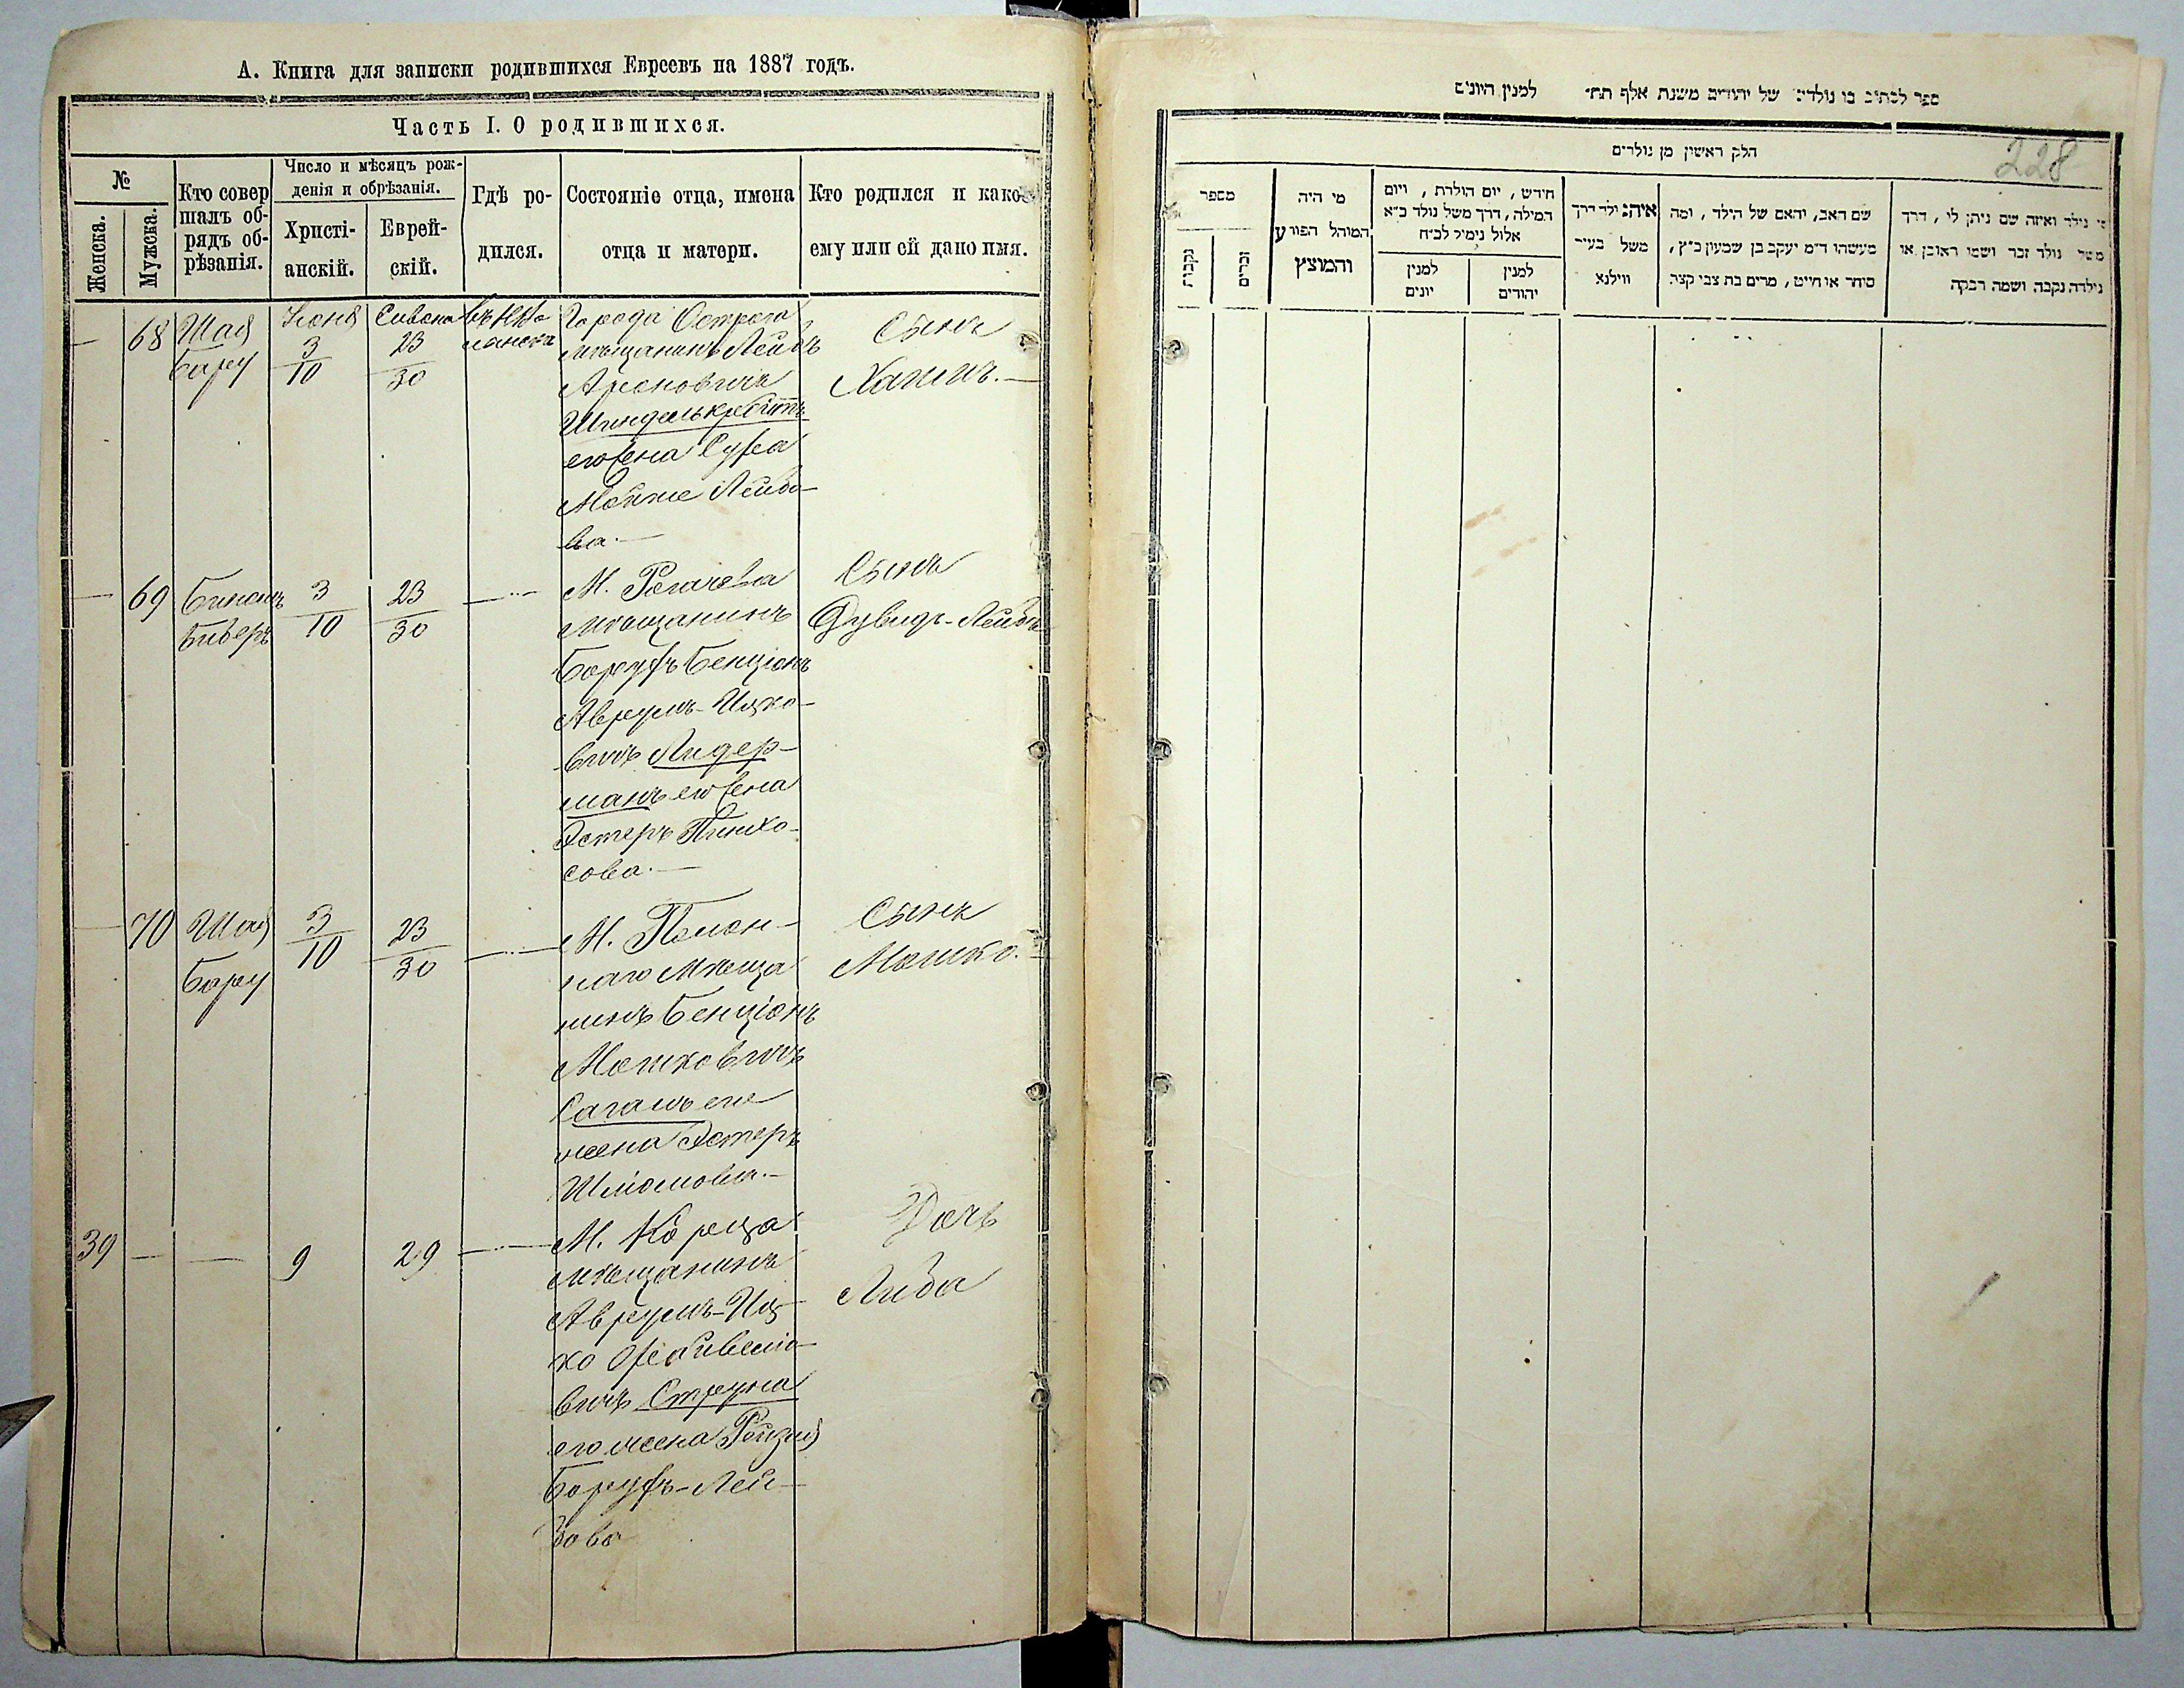 А. Книга для записки родившихся Евреевъ на 1887 годъ.
Часть I. О родившихся.
№
Женска.
Мужска.
Кто совер
шалъ об-
рядъ об-
рѣзанія.
Число и мѣсяцъ рож-
денія и обрѣзанія.
Христі-
анскій.
Еврей-
скій.
Гдѣ ро-
дился.
Состояніе отца, имена
отца и матери.
Кто родился и како
ему или ей дано имя.
— 68 Шая
Бару
Іюня
3
10
Сивана
23
30
Города Острога
мѣщанинъ Лейбъ
Ароновичъ
Шинделькройтъ
его жена Сура
Мойше Лейбо-
ва.—
Сынъ
Хаимъ.—
— 69
3
10
23
30
—"—
М. Рогачева
мѣщанинъ
Борухъ Бенціонъ
Аврумъ-Ицко-
вичъ Лидер-
манъ его жена
Эстеръ Пинхо-
сова.—
Сынъ
Дувидъ-Лейбъ
— 70 Шая
Бару
3
10
23
30
—"—
М. Полон-
наго Мѣща
нинъ Бенціонъ
Мошковичъ
Саганъ его
жена Эстеръ
Шліомова.—
Сынъ
Мошко.—
39 — — 9 29 —"—
М. Кореца
мѣщанинъ
Аврумъ-Иц-
ко
вичъ Струна
его жена Рейзя
Борухъ-Лей-
бова
Дочь
Либа
ספר לכתוב בו נולדים של יהודים משנת אלף תת׳ למנין היונים
228
חלק ראשון מן נולדים
מספר
נקבות
זכרים
מי היה
המוהל הפורע
והמוצץ
חודש, יום הולדת, ויום
המילה, דרך משל נולד כ״א
אלול נימול לכ״ח
למנין
יונים
למנין
יהודים
איה נולד דרך
משל בעיר
ווילנא
שם האב, והאם של הילד, ומה
מעשהו ד״מ יעקב בן שמעון כ״ץ,
סוחר או חייט, מרים בת צבי קצב
מי נולד ואיזה שם ניתן לו, דרך
משל נולד זכר ושמו ראובן או
נולדה נקבה ושמה רבקה